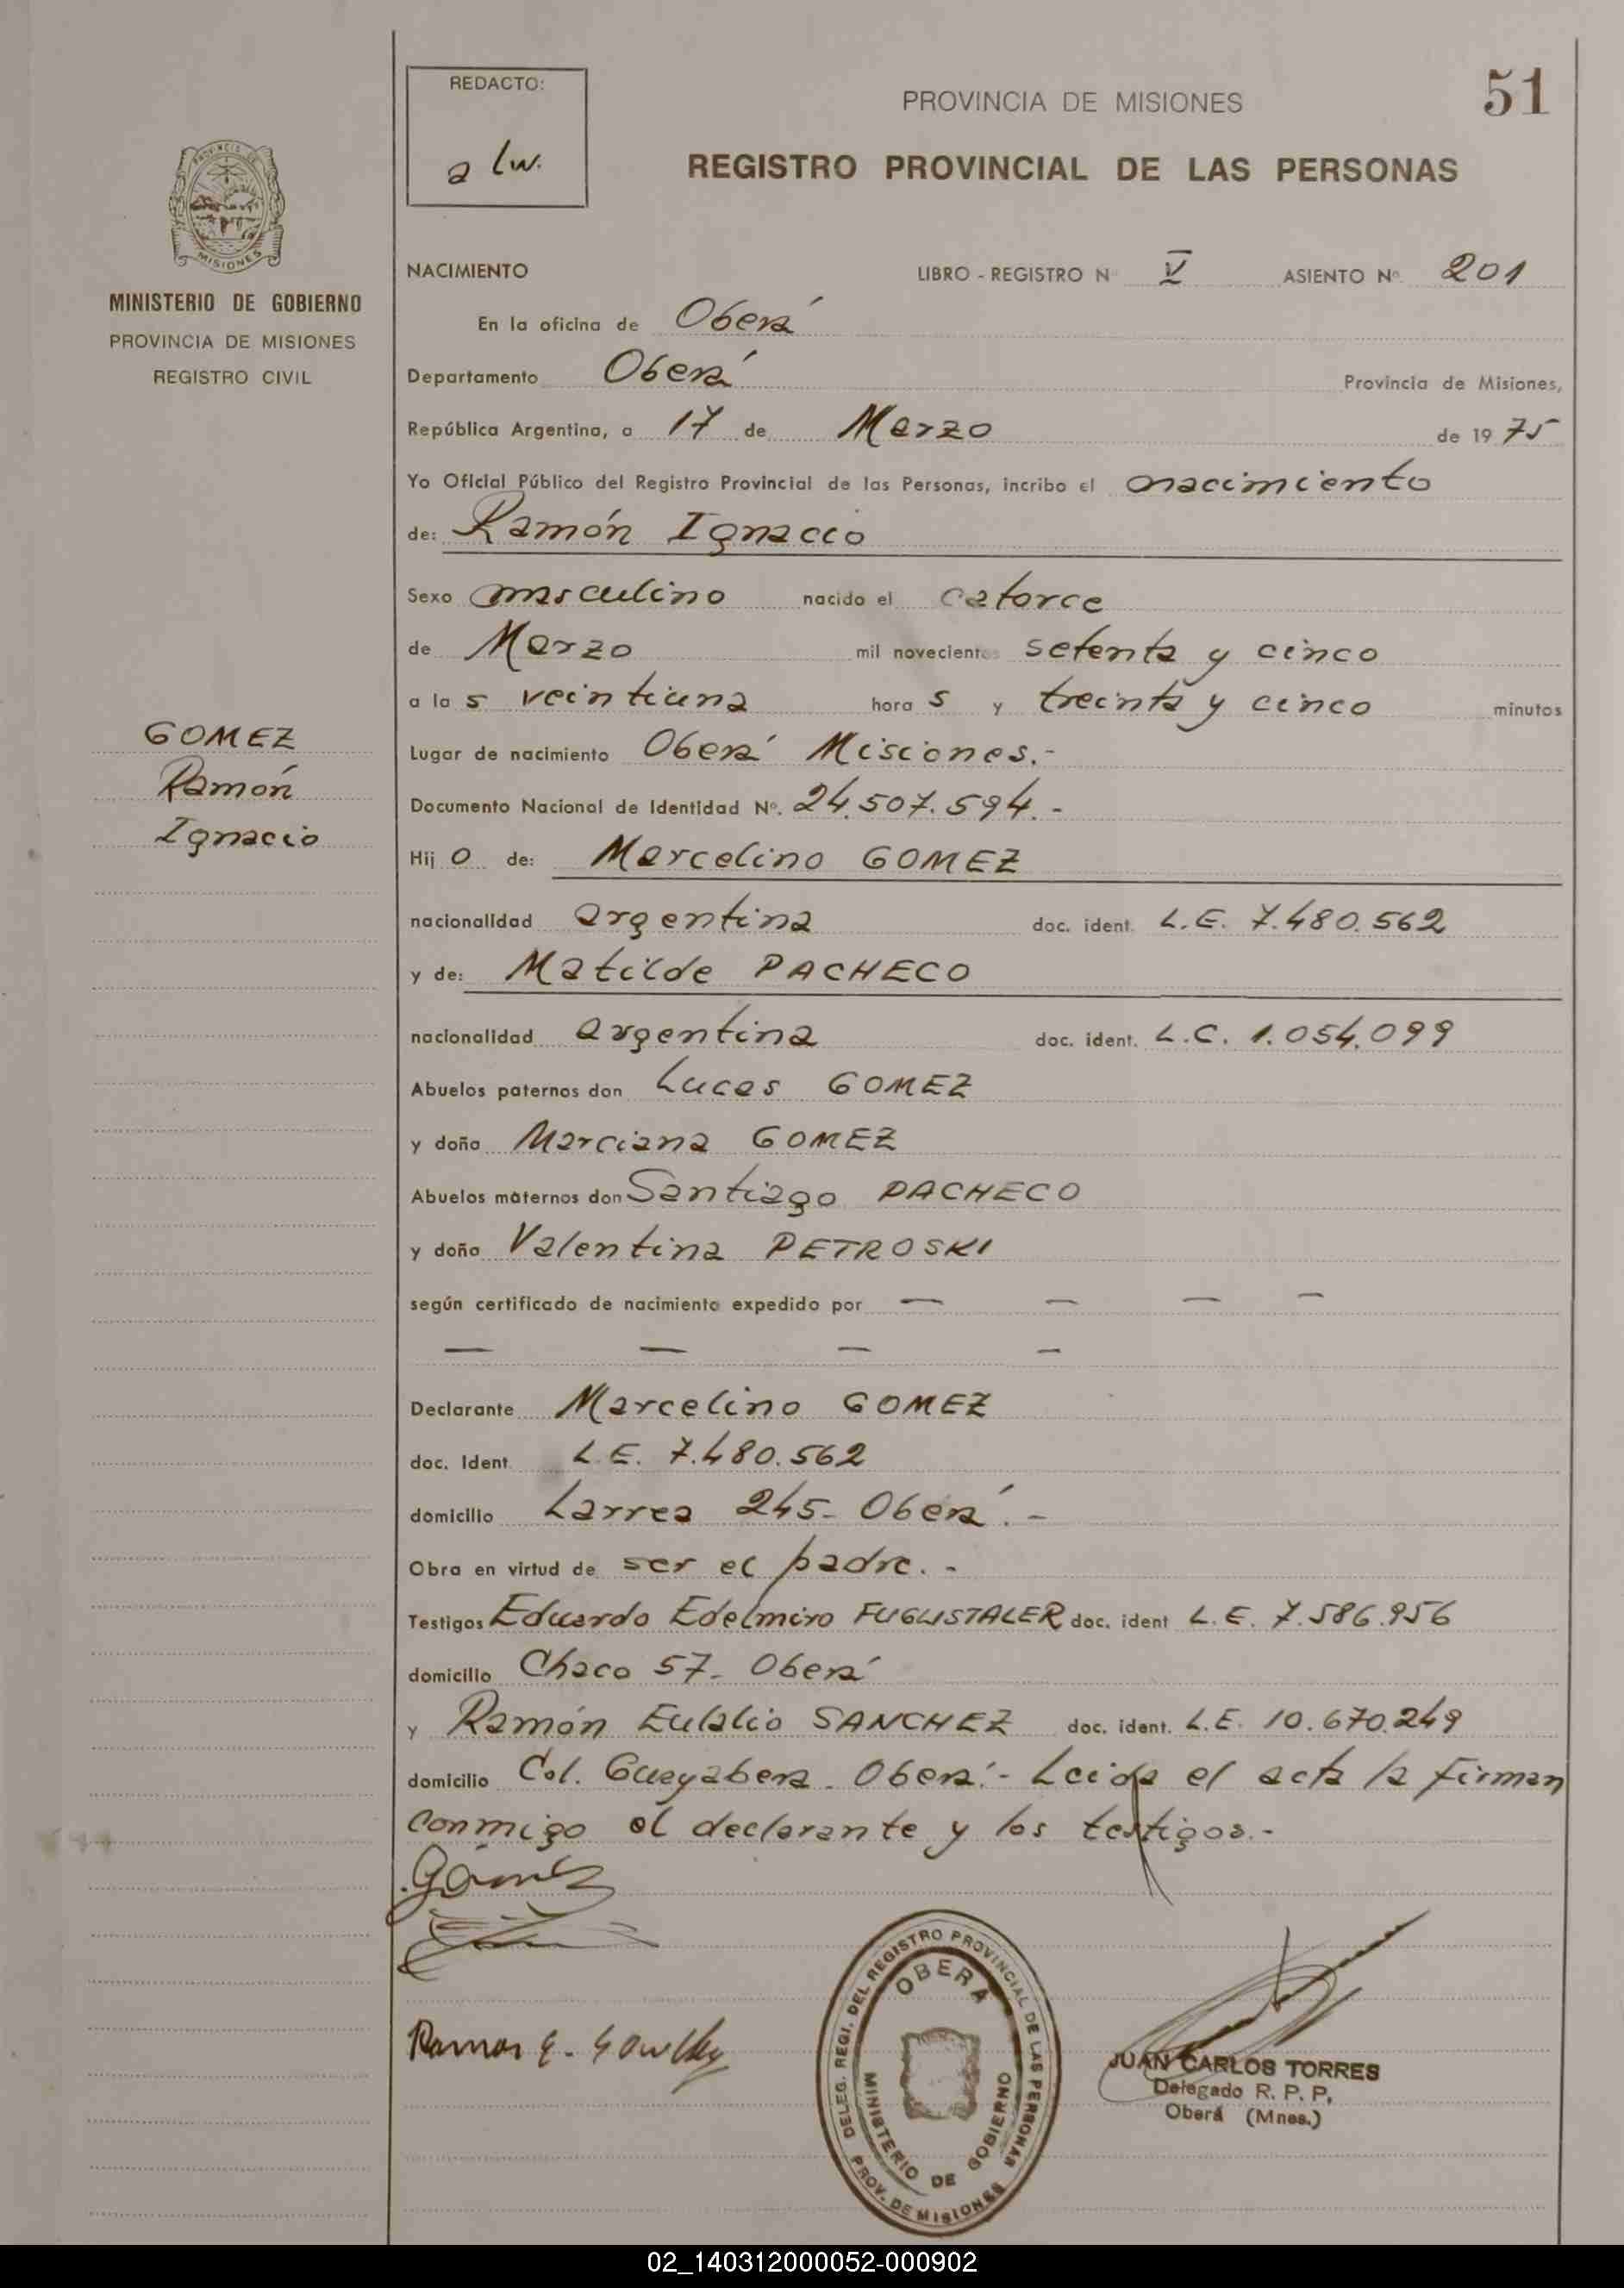 REDACTO:
a lw.
PROVINCIA DE MISIONES
51
REGISTRO PROVINCIAL DE LAS PERSONAS
MISIONES
MINISTERIO DE GOBIERNO
PROVINCIA DE MISIONES
REGISTRO CIVIL
NACIMIENTO LIBRO - REGISTRO N V ASIENTO Nº. 201
En la oficina de Oberá
Departamento Oberá Provincia de Misiones,
República Argentina, a 17 de Marzo de 1975
Yo Oficial Público del Registro Provincial de las Personas, incribo el nacimiento
de: Ramón Ignacio
Sexo masculino nacido el catorce
de Marzo mil novecientos setenta y cinco
a las veintiuna horas y treinta y cinco minutos
GOMEZ
Ramón
Ignacio
Lugar de nacimiento Oberá Misiones.-
Documento Nacional de Identidad Nº. 24.507.594.-
Hijo de: Marcelino GOMEZ
nacionalidad argentina doc. ident. L.E. 7.480.562
y de: Matilde PACHECO
nacionalidad argentina doc. ident. L.C. 1.054.099
Abuelos paternos don Lucas GOMEZ
y doña Marciana GOMEZ
Abuelos maternos don Santiago PACHECO
y doña Valentina PETROSKI
según certificado de nacimiento expedido por — — — —
— — — —
Declarante Marcelino GOMEZ
doc. Ident. L.E. 7.480.562
domicilio Larrea 245- Oberá.-
Obra en virtud de ser el padre.-
Testigos Eduardo Edelmiro FUGLISTALER doc. ident L.E. 7.586.956
domicilio Chaco 57- Oberá
y Ramón Eulalio SANCHEZ doc. ident. L.E. 10.670.249
domicilio Col. Guayabera - Oberá.- Leida el acta la firman
conmigo el declarante y los testigos.-
Gómez
DELEG. REGI. DEL REGISTRO PROVINCIAL DE LAS PERSONAS
OBERA
MINISTERIO DE GOBIERNO
PROV. DE MISIONES
JUAN CARLOS TORRES
Delegado R. P. P.
Oberá (Mnes.)
02_140312000052-000902